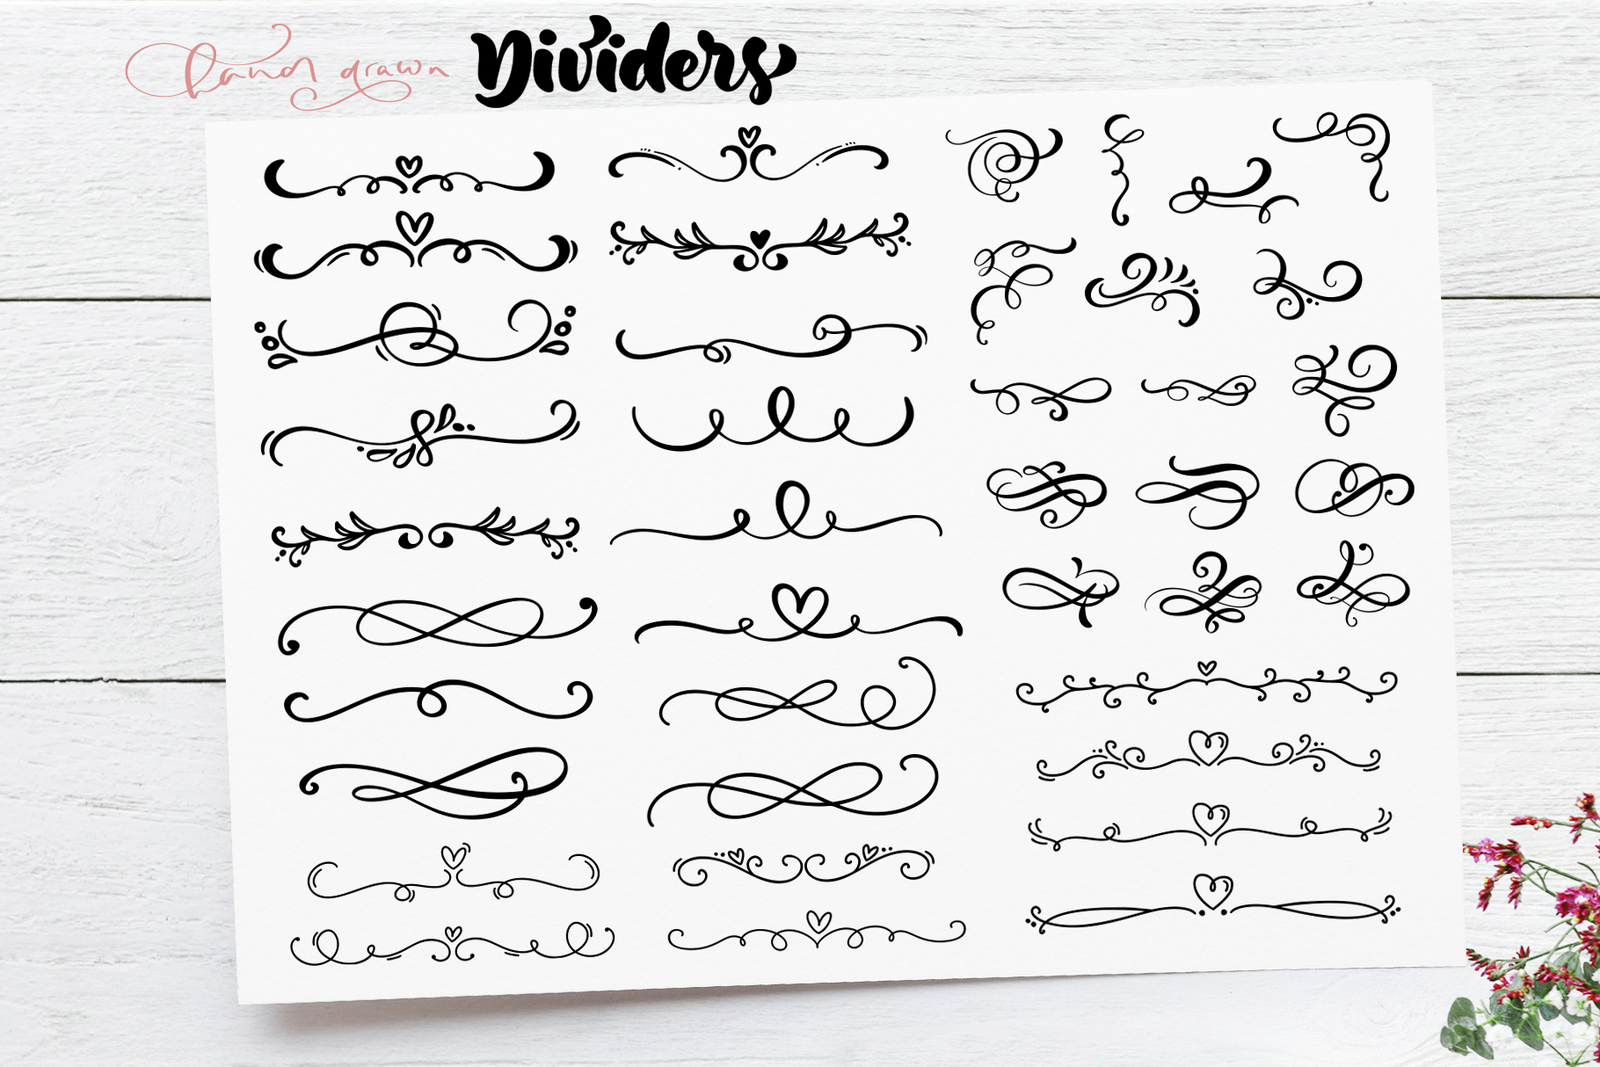 hand drawn Dividers